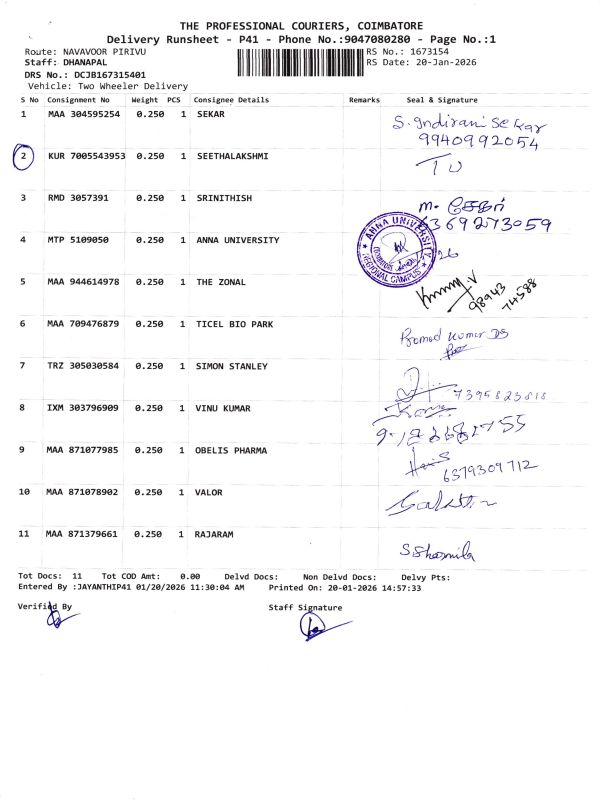 THE PROFESSIONAL COURIERS, COIMBATORE
Delivery Runsheet - P41 - Phone No.:9047080280 - Page No.:1
Route: NAVAVOOR PIRIVU
RS No.: 1673154
Staff: DHANAPAL
RS Date: 20-Jan-2026
DRS No.: DCJB167315401
Vehicle: Two Wheeler Delivery
S No Consignment No Weight PCS Consignee Details Remarks Seal & Signature
1 MAA 304595254 0.250 1 SEKAR S. Indirani Sekar
9940992054
2 KUR 7005543953 0.250 1 SEETHALAKSHMI
3 RMD 3057391 0.250 1 SRINITHISH m. சேகர்
6369273059
4 MTP 5109050 0.250 1 ANNA UNIVERSITY ANNA UNIVERSITY REGIONAL CAMPUS
5 MAA 944614978 0.250 1 THE ZONAL 98943
74588
6 MAA 709476879 0.250 1 TICEL BIO PARK Pramod Kumar DS
7 TRZ 305030584 0.250 1 SIMON STANLEY 7395823818
8 IXM 303796909 0.250 1 VINU KUMAR
9 MAA 871077985 0.250 1 OBELIS PHARMA 6379309712
10 MAA 871078902 0.250 1 VALOR
11 MAA 871379661 0.250 1 RAJARAM S Sharmila
Tot Docs: 11 Tot COD Amt: 0.00 Delvd Docs: Non Delvd Docs: Delvy Pts:
Entered By :JAYANTHIP41 01/20/2026 11:30:04 AM Printed On: 20-01-2026 14:57:33
Verified By Staff Signature